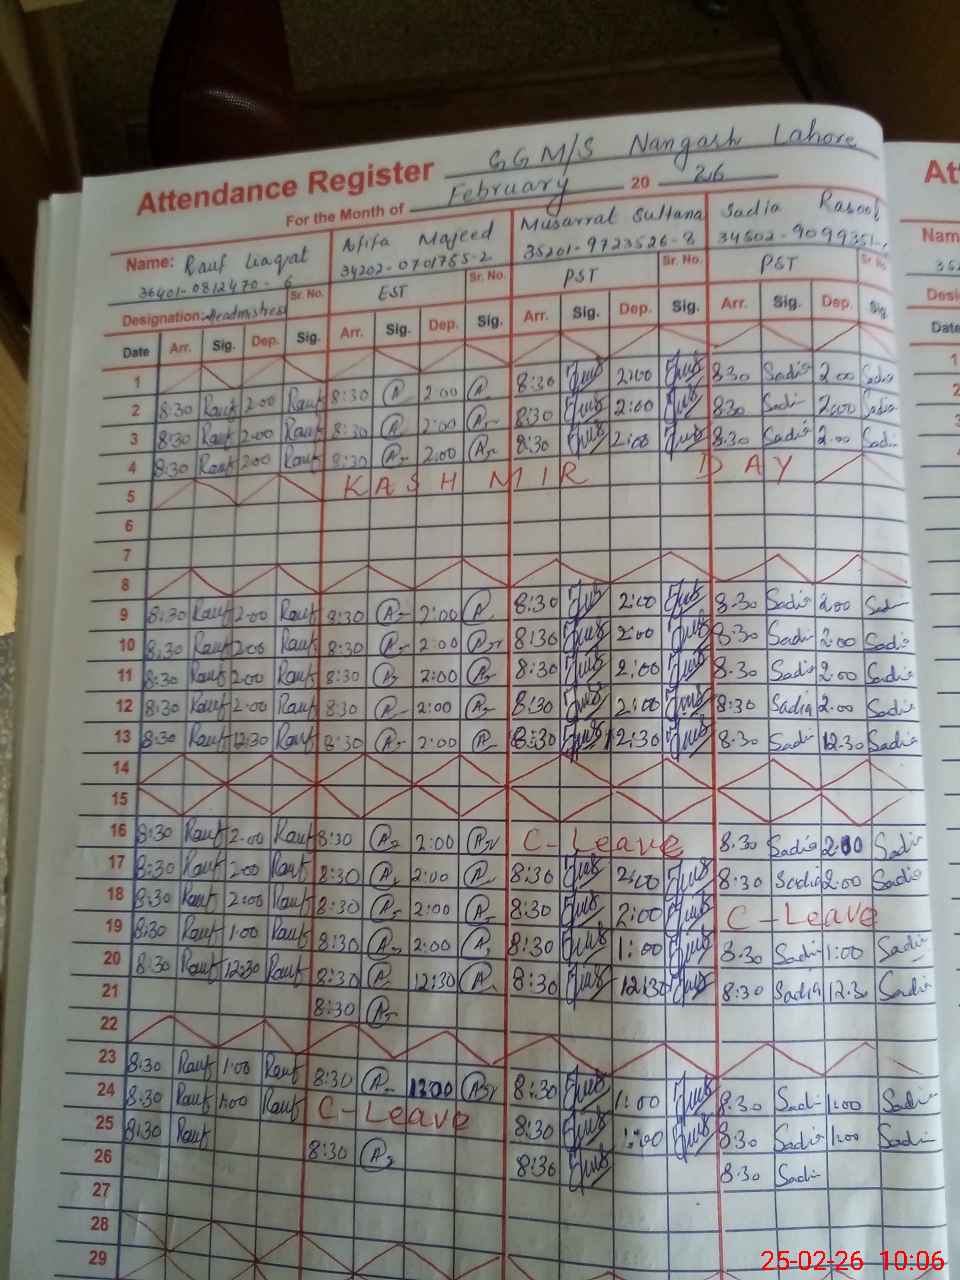 Attendance Register GGM/S Nangash Lahore
For the Month of February 20 26
Name: Rauf Liaqat Afifa Majeed Musarrat Sultana Sadia Rasool
36401-0812470-6 34202-0701765-2 35201-9723526-8
Sr. No. EST Sr. No. PST Sr. No. PST Sr No.
Designation: Headmistress
Date Arr. Sig. Dep. Sig. Arr. Sig. Dep. Sig. Arr. Sig. Dep. Sig. Arr. Sig. Dep. Sig.
1
2 8:30 Rauf 2:00 Rauf 8:30 A 2:00 A 8:30 2:00 8:30 Sadia 2:00 Sadia
3 8:30 Rauf 2:00 Rauf 8:30 A 2:00 A 8:30 2:00 8:30 Sadia 2:00 Sadia
4 8:30 Rauf 2:00 Rauf 8:30 A 2:00 A 8:30 2:00 8:30 Sadia 2:00 Sadi
5 KASHMIR DAY
6
7
8
9 8:30 Rauf 2:00 Rauf 8:30 A 2:00 A 8:30 2:00 8:30 Sadia 2:00 Sadi
10 8:30 Rauf 2:00 Rauf 8:30 A 2:00 A 8:30 2:00 8:30 Sadi 2:00 Sadi
11 8:30 Rauf 2:00 Rauf 8:30 A 2:00 A 8:30 2:00 8:30 Sadia 2:00 Sadia
12 8:30 Rauf 2:00 Rauf 8:30 A 2:00 A 8:30 2:00 8:30 Sadia 2:00 Sadia
13 8:30 Rauf 12:30 Rauf 8:30 A 2:00 A 8:30 12:30 8:30 Sadi 12:30 Sadia
14
15
16 8:30 Rauf 2:00 Rauf 8:30 A 2:00 A C-Leave 8:30 Sadia 2:00 Sadi
17 8:30 Rauf 2:00 Rauf 8:30 A 2:00 A 8:30 2:00 8:30 Sadia 2:00 Sadia
18 8:30 Rauf 2:00 Rauf 8:30 A 2:00 A 8:30 2:00 C-Leave
19 8:30 Rauf 1:00 Rauf 8:30 A 2:00 A 8:30 1:00 8:30 Sadi 1:00 Sadi
20 8:30 Rauf 12:30 Rauf 8:30 A 12:30 A 8:30 12:30 8:30 Sadia 12:30 Sadi
21 8:30 A
22
23 8:30 Rauf 1:00 Rauf 8:30 A A 8:30 1:00 8:30 Sadi 1:00 Sadi
24 8:30 Rauf 1:00 Rauf C-Leave 8:30 1:00 8:30 Sadia 1:00 Sadi
25 8:30 Rauf 8:30 A 8:30 8:30 Sadi
26
27
28
29
25-02-26 10:06